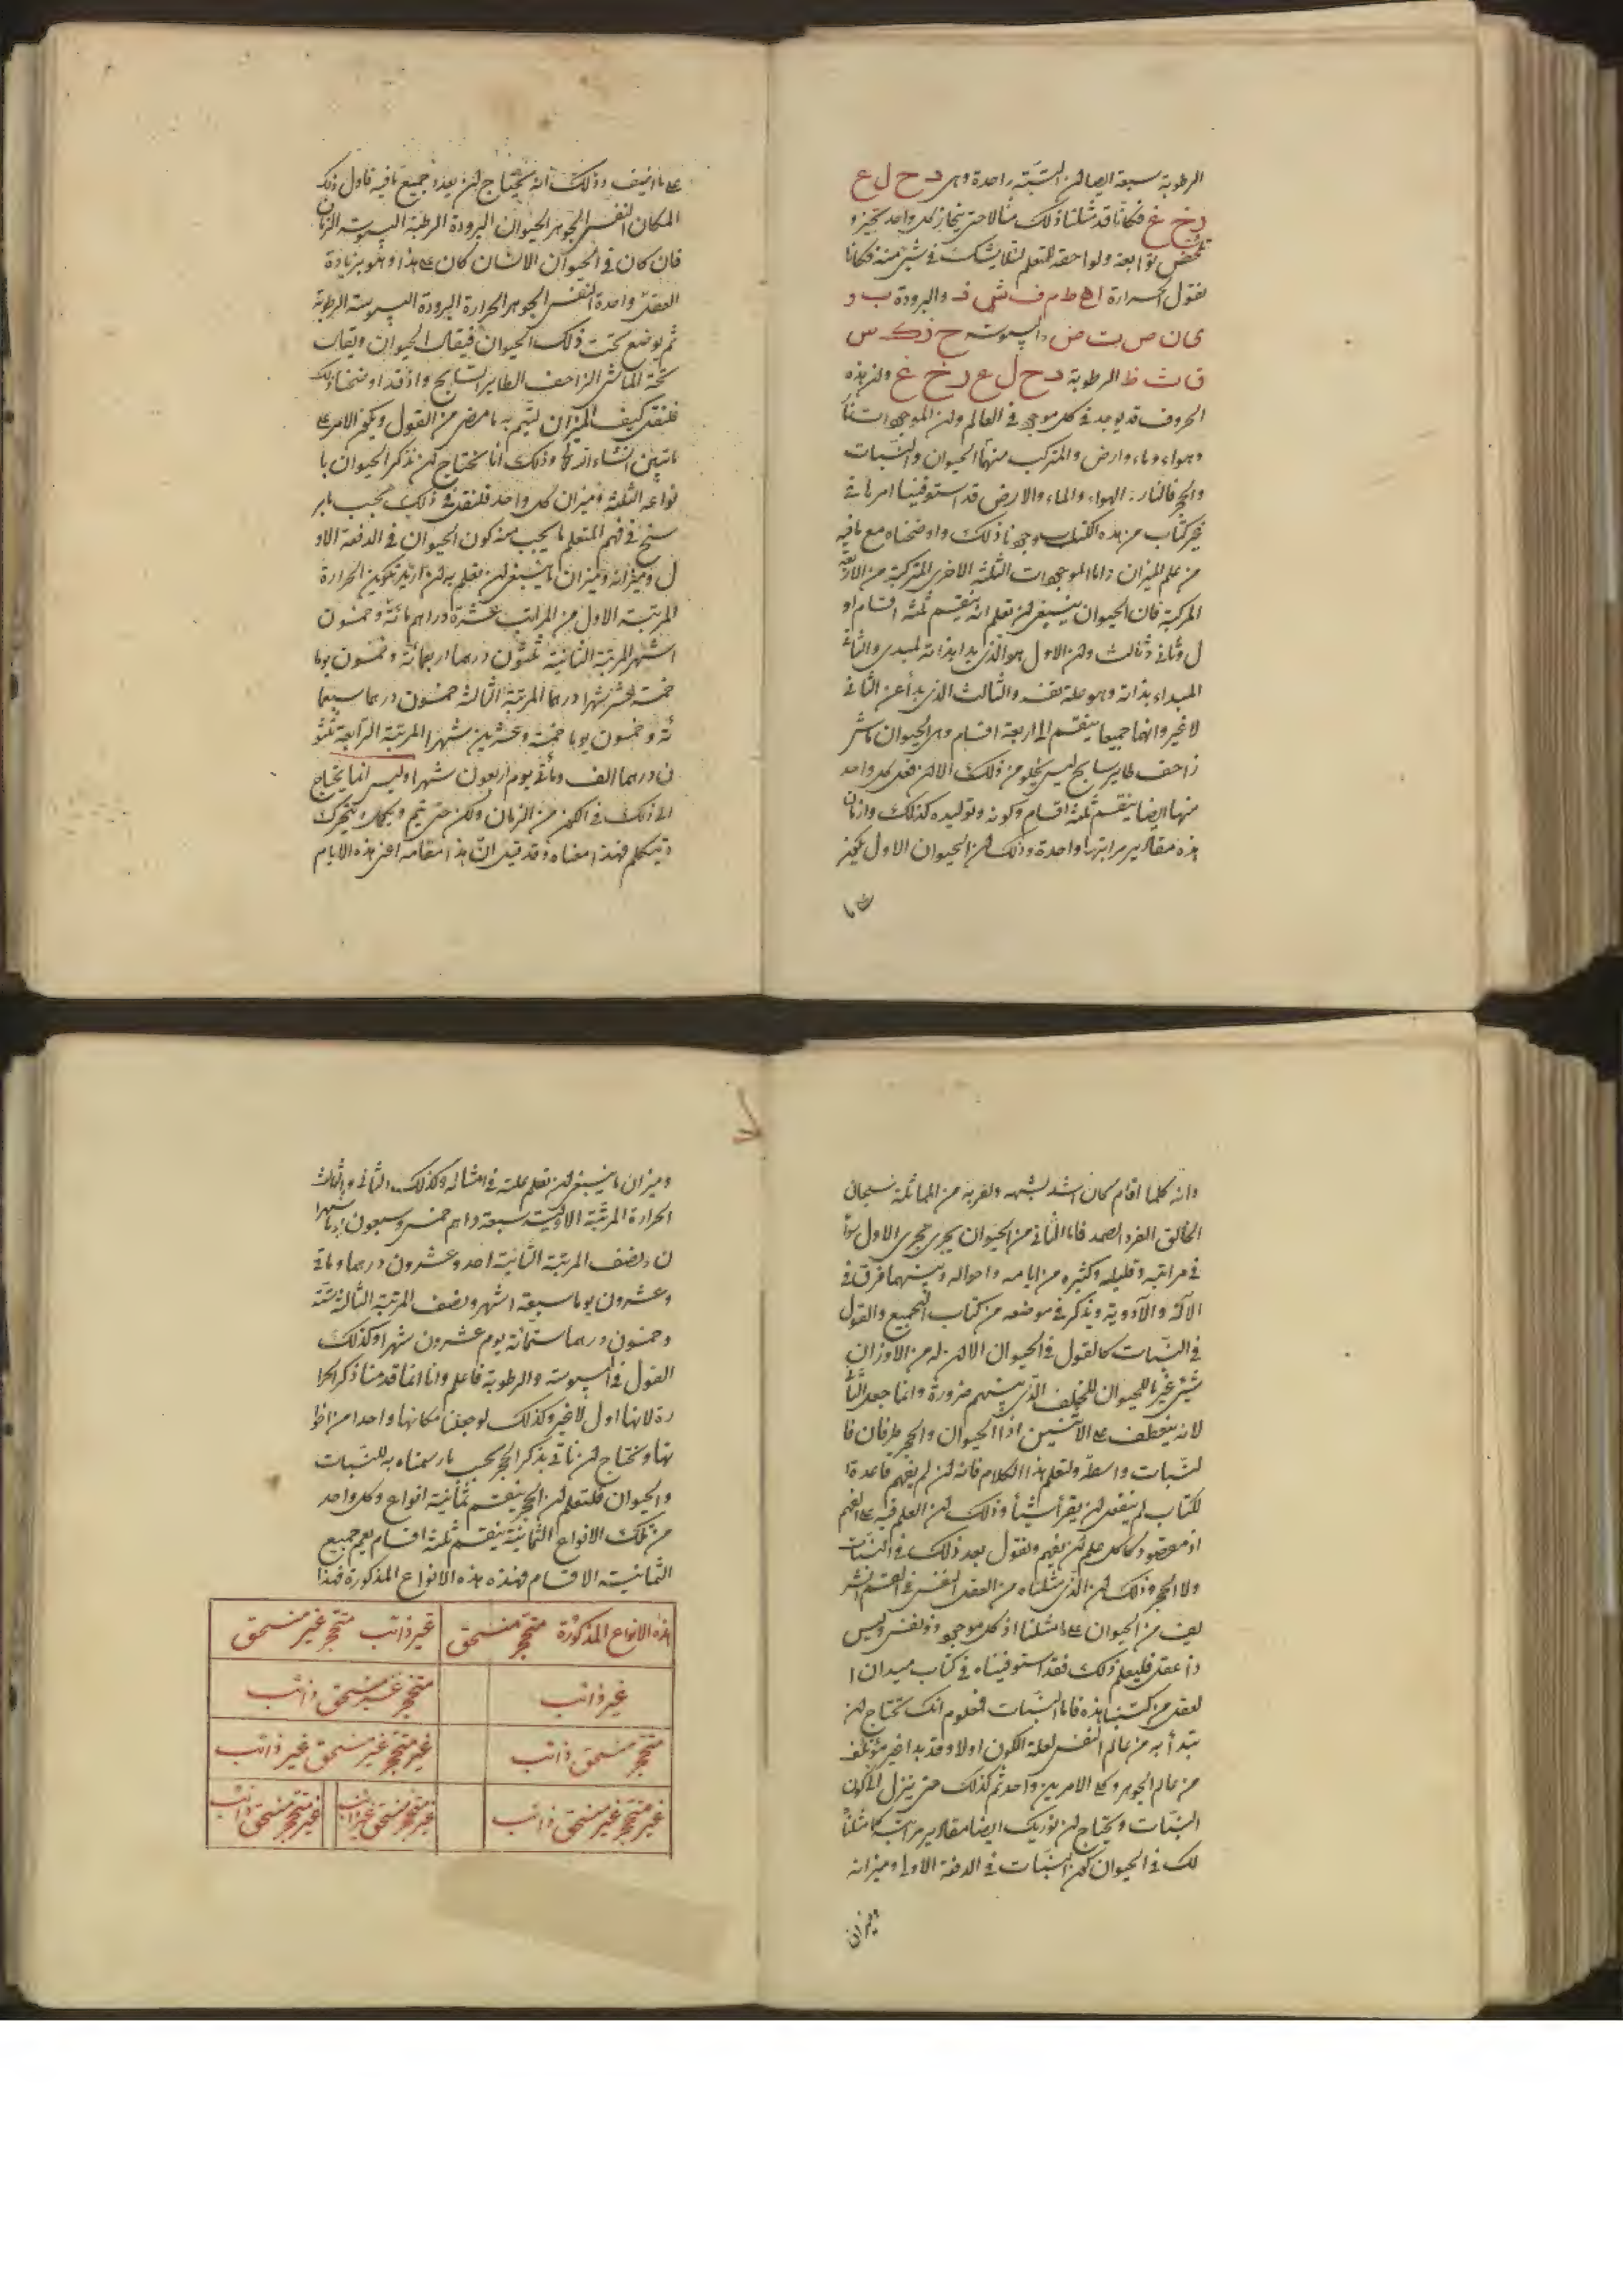 الرطوبة سبعة ايضا لان النسبة واحدة وهي د ح ل ع
ر خ غ فكانا قد مثلنا ذلك مثالا حتى ينحاز كل واحد بتميز و
تلخص توابعه ولواحقه للمتعلم لئلا يشك في شئ منه فكانا
نقول الحرارة ا ه ط م ف ش ذ والبرودة ب و
ى ن ص ت ض واليبوسة ج ز ك س
ق ث ظ الرطوبة د ح ل ع ر خ غ وان هذه
الحروف قد يوجد في كل موجود في العالم وان الموجودات نار
وهواء وماء وارض والمتركب منها الحيوان والنبات
والحجر فالنار والهواء والماء والارض قد استوفينا امرها في
غير كتاب من هذه الكتب ووجدنا ذلك واوضحناه مع ما فيه
من علم الميزان واما الموجودات الثلثة الاخرى المتركبة من الاربعة
المركبة فان الحيوان ينبغي ان تعلم انه ينقسم ثلثة اقسام او
ل وثاني وثالث وان الاول هو الذي بدا بذاته لمبدى والثاني
المبداء بذاته وهو علة نفسه والثالث الذي بدأ عن الثاني
لا غير وانها جميعا ينقسم الى اربعة اقسام وهي الحيوان ماش
زاحف طاير سابح ليس يخلو من ذلك الا ان فعل كل واحد
منها ايضا ينقسم ثلثة اقسام وكونه وتوليده كذلك وازمان
هذه مقادير مراتبها واحدة وذلك ان الحيوان الاول يكون
على ما اضيف وذلك انه يحتاج ان يعدد جميع ما فيه فاول ذلك
المكان النفس الجوهر الحيوان البرودة الرطبة اليبوسة الزمان
فان كان في الحيوان الانسان كان على هذا وهو بزيادة
العقل واحدة النفس الجوهر الحرارة البرودة اليبوسة الرطوبة
ثم يوضع تحت ذلك الحيوان فيقال الحيوان ويقال
تحته الماشي الزاحف الطاير السابح واذ قد اوضحنا ذلك
فلنقل كيف الميزان ليتم به ما مضى من القول ويكون الامر على
ما تبين انشاء الله تعالى وذلك انا نحتاج ان نذكر الحيوان با
نواعه الثلثة وميزان كل واحد فلنقل في ذلك بحسب ما ير
سخ في فهم المتعلم ما يجب من كون الحيوان في الدفعة الاو
ل وميزانه وميزان ما ينبغي ان تعلم به ان اريد تكوين الحرارة
المرتبة الاول من المراتب عشرة دراهم مائة وخمسون
اشهر المرتبة الثانية ثلثون درهما اربعمائة وخمسون يوما
خمسة عشر شهرا درهما المرتبة الثالثة خمسون درهما سبعما
ئة وخمسون يوما خمسة وعشرين شهرا المرتبة الرابعة ثمنو
ن درهما الف ومأتى يوم اربعون شهرا وليس انما يحتاج
الى ذلك في الكون من الزمان ولكن حتى يتم ويكمل ويتحرك
ويتكلم فهذا معناه وقد قيل ان هذا مقامه اعني هذه الايام
وانه كلما اقام كان اشد لشبهه ولقربه من المماثلة سبحان
الخالق الفرد الصمد فاما الثاني من الحيوان يجرى مجرى الاول سوآ
في مراتبه وقليله وكثيره من ايامه واحواله وبينهما فرق في
الآلة والادوية ويذكر في موضعه من كتاب التجميع والقول
في النبات كالقول في الحيوان الا ان له من الاوزان
شئ غير ما للحيوان للخلف الذي بينهم ضرورة وانما جعل الثاني
لانه ينعطف على الاثنين اذا الحيوان والحجر طرفان فا
لنبات واسطة ولتعلم هذا الكلام فانه ان لم يفهم قاعدة ا
لكتاب لم ينفعه ان يقرأ شيأ وذلك ان العلم فيه على الفهم
اذ مقصود كل علم ان يفهم ونقول بعد ذلك في النبات
ولا الحجر وذلك ان الذي مثلناه من العقل النفس في القسم الشر
يف من الحيوان على ما مثلنا اذ كل موجود ذو نفس وليس
ذا عقل فليعلم ذلك فقد استوفيناه في كتاب ميدان ا
لعقل من كتبنا هذه فاما النبات فمعلوم انك تحتاج ان
تبتدأ به من عالم النفس لعلة الكون اولا وقد بدا غير مؤتلف
من عالم الجوهر وكلا الامرين واحد ثم كذلك حتى ينزل الى كون
النبات ويحتاج ان نوريك ايضا مقادير مراتبه كما مثلنا
لك في الحيوان كون النبات في الدفعة الاولى وميزانه
وميزان
وميزان ما ينبغي ان تعلم علمه في امثاله وكذلك الثاني والثالث
الحرارة المرتبة الاولية سبعة دراهم خمس وسبعون يوما شهرا
ن ونصف المرتبة الثانية احد وعشرون درهما ومأتى
وعشرون يوما سبعة اشهر ونصف المرتبة الثالثة ستة
وخمسون درهما ستمائة يوم عشرون شهرا وكذلك
القول في اليبوسة والرطوبة فاعلم وانا انما قدمنا ذكر الحرا
رة لانها اول لا غير وكذلك لو جعلنا مكانها واحدا من اخوا
تها ونحتاج ان نأتي بذكر الحجر بحسب ما رسمناه به للنبات
والحيوان فلتعلم ان الحجر ينقسم ثمانية انواع وكل واحد
من تلك الانواع الثمانية ينقسم ثلثة اقسام يعم جميع
الثمانية الاقسام فهذه هذه الانواع المذكورة فهذا
هذه الانواع المذكورة متحجر منسحق غير ذائب متحجر غير منسحق
غير ذائب متحجر غير منسحق ذائب
متحجر منسحق ذائب غير متحجر غير منسحق غير ذائب
غير متحجر غير منسحق ذائب غير متحجر منسحق غير ذائب غير متحجر منسحق ذائب